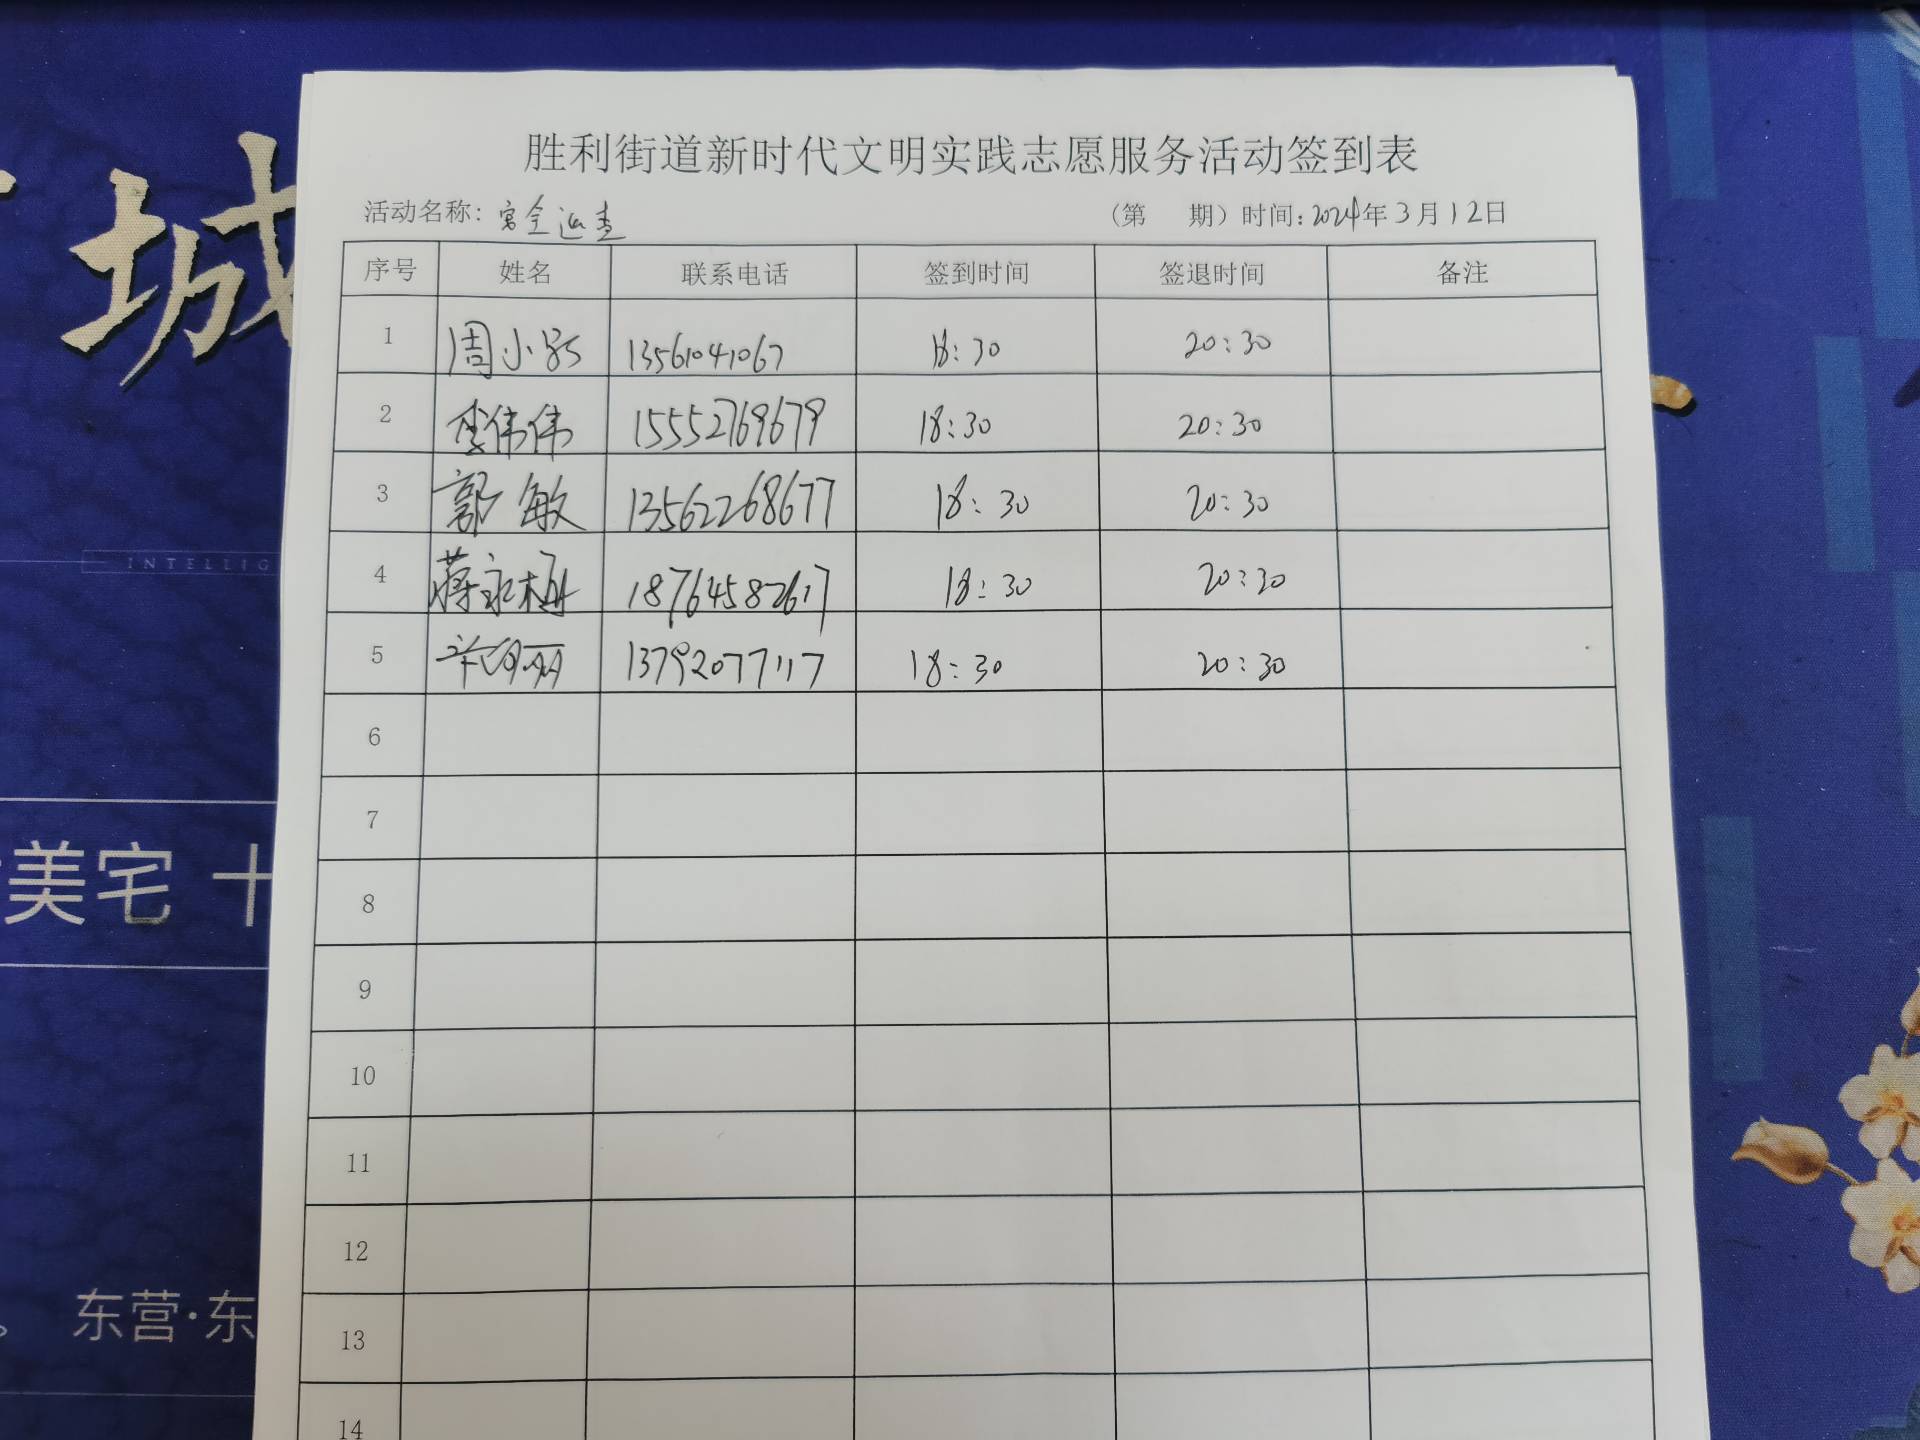 胜利街道新时代文明实践志愿服务活动签到表
活动名称：安全巡查 （第 期）时间：2024年3月12日
序号 姓名 联系电话 签到时间 签退时间 备注
1 周小 13561041067 18:30 20:30
2 李伟伟 15552769679 18:30 20:30
3 郭敏 13562268677 18:30 20:30
4 蒋永梅 18764582617 18:30 20:30
5 丽 13792077117 18:30 20:30
6
7
8
9
10
11
12
13
14
城
INTELLIG
美宅 十
东营·东